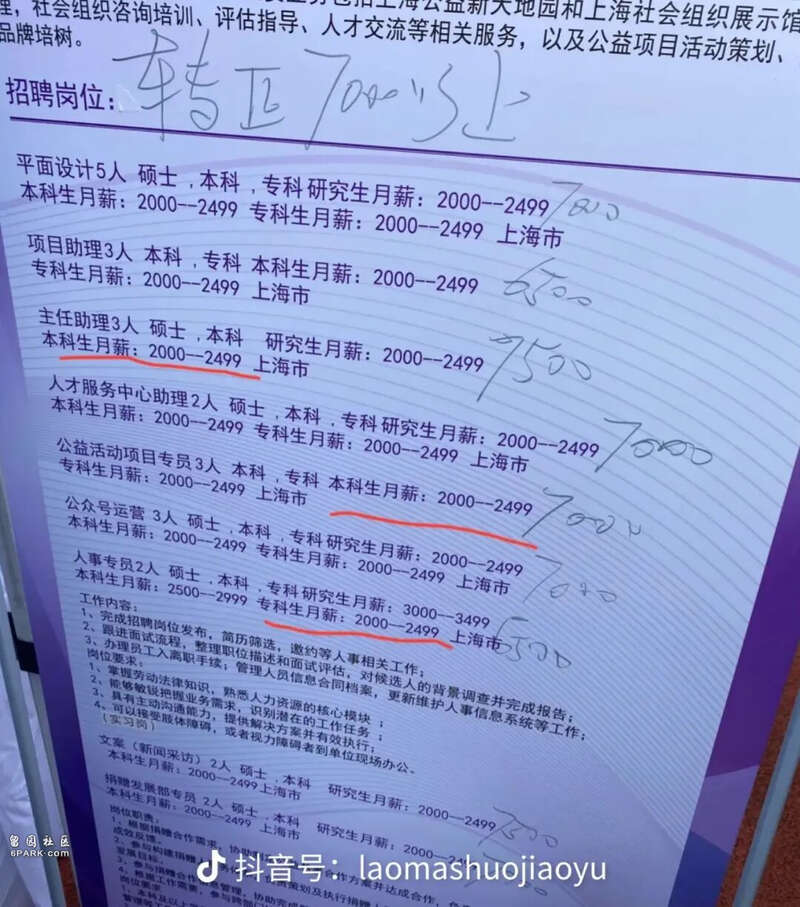 社会组织咨询培训、评估指导、人才交流等相关服务，以及公益项目活动策划、
品牌培树。
招聘岗位：转正7000以上
平面设计5人 硕士，本科，专科 研究生月薪：2000--2499 7000
本科生月薪：2000--2499 专科生月薪：2000--2499 上海市
项目助理3人 本科，专科 本科生月薪：2000--2499 6500
专科生月薪：2000--2499 上海市
主任助理3人 硕士，本科 研究生月薪：2000--2499 7500
本科生月薪：2000--2499 上海市
人才服务中心助理2人 硕士，本科，专科 研究生月薪：2000--2499 7000
本科生月薪：2000--2499 专科生月薪：2000--2499 上海市
公益活动项目专员3人 本科，专科 本科生月薪：2000--2499 7000
专科生月薪：2000--2499 上海市
公众号运营 3人 硕士，本科，专科 研究生月薪：2000--2499 7000
本科生月薪：2000--2499 专科生月薪：2000--2499 上海市
人事专员2人 硕士，本科，专科 研究生月薪：3000--3499
本科生月薪：2500--2999 专科生月薪：2000--2499 上海市 6500
工作内容：
1、完成招聘岗位发布，简历筛选，邀约等人事相关工作；
2、跟进面试流程，整理职位描述和面试评估，对候选人的背景调查并完成报告；
3、办理员工入离职手续；管理人员信息合同档案，更新维护人事信息系统等工作；
岗位要求：
1、掌握劳动法律知识，熟悉人力资源的核心模块；
2、能够敏锐把握业务需求，识别潜在的工作任务；
3、具有主动沟通能力，提供解决方案并有效执行；
4、可以接受肢体障碍，或者视力障碍者到单位现场办公。
（实习岗）
文案（新闻采访）2人 硕士，本科 研究生月薪：2000--2499 7500
本科生月薪：2000--2499 上海市
捐赠发展部专员 2人 硕士，本科 研究生月薪：2000--2499
本科生月薪：2000--2499 上海市
岗位职责：
1、根据捐赠合作需求，协助
合作方案并达成合作，
成效反馈。
2、参与构建捐赠
策划及执行捐赠
发展目标。
岗位要求
留园社区
6PARK.com
抖音号：laomashuojiaoyu